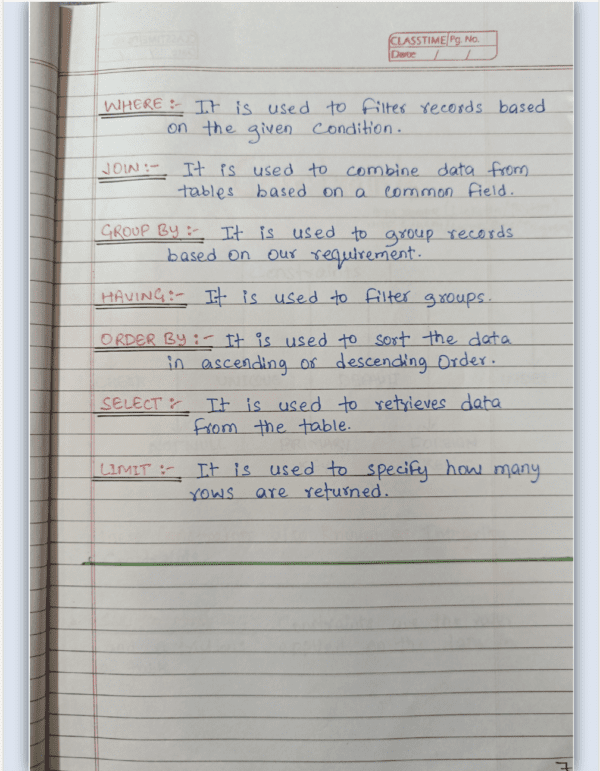 CLASSTIME Pg. No.
Date / /
WHERE :- It is used to filter records based
on the given Condition.
JOIN :- It is used to combine data from
tables based on a common field.
GROUP BY :- It is used to group records
based on our requirement.
HAVING :- It is used to filter groups.
ORDER BY :- It is used to sort the data
in ascending or descending Order.
SELECT :- It is used to retrieves data
from the table.
LIMIT :- It is used to specify how many
rows are returned.
7